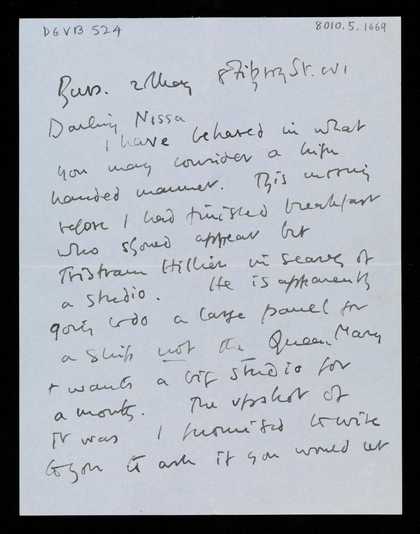 DGVB 524 8010.5.1669
2 May 8 Fitzroy St. W1
Darling Nissa
I have behaved in what
you may consider a high
handed manner. This morning
before I had finished breakfast
who should appear but
Tristram Hillier in search of
a studio. He is apparently
going to do a large panel for
a ship not the Queen Mary
+ wants a big studio for
a month. The upshot of
it was I promised to write
to you to ask if you would let